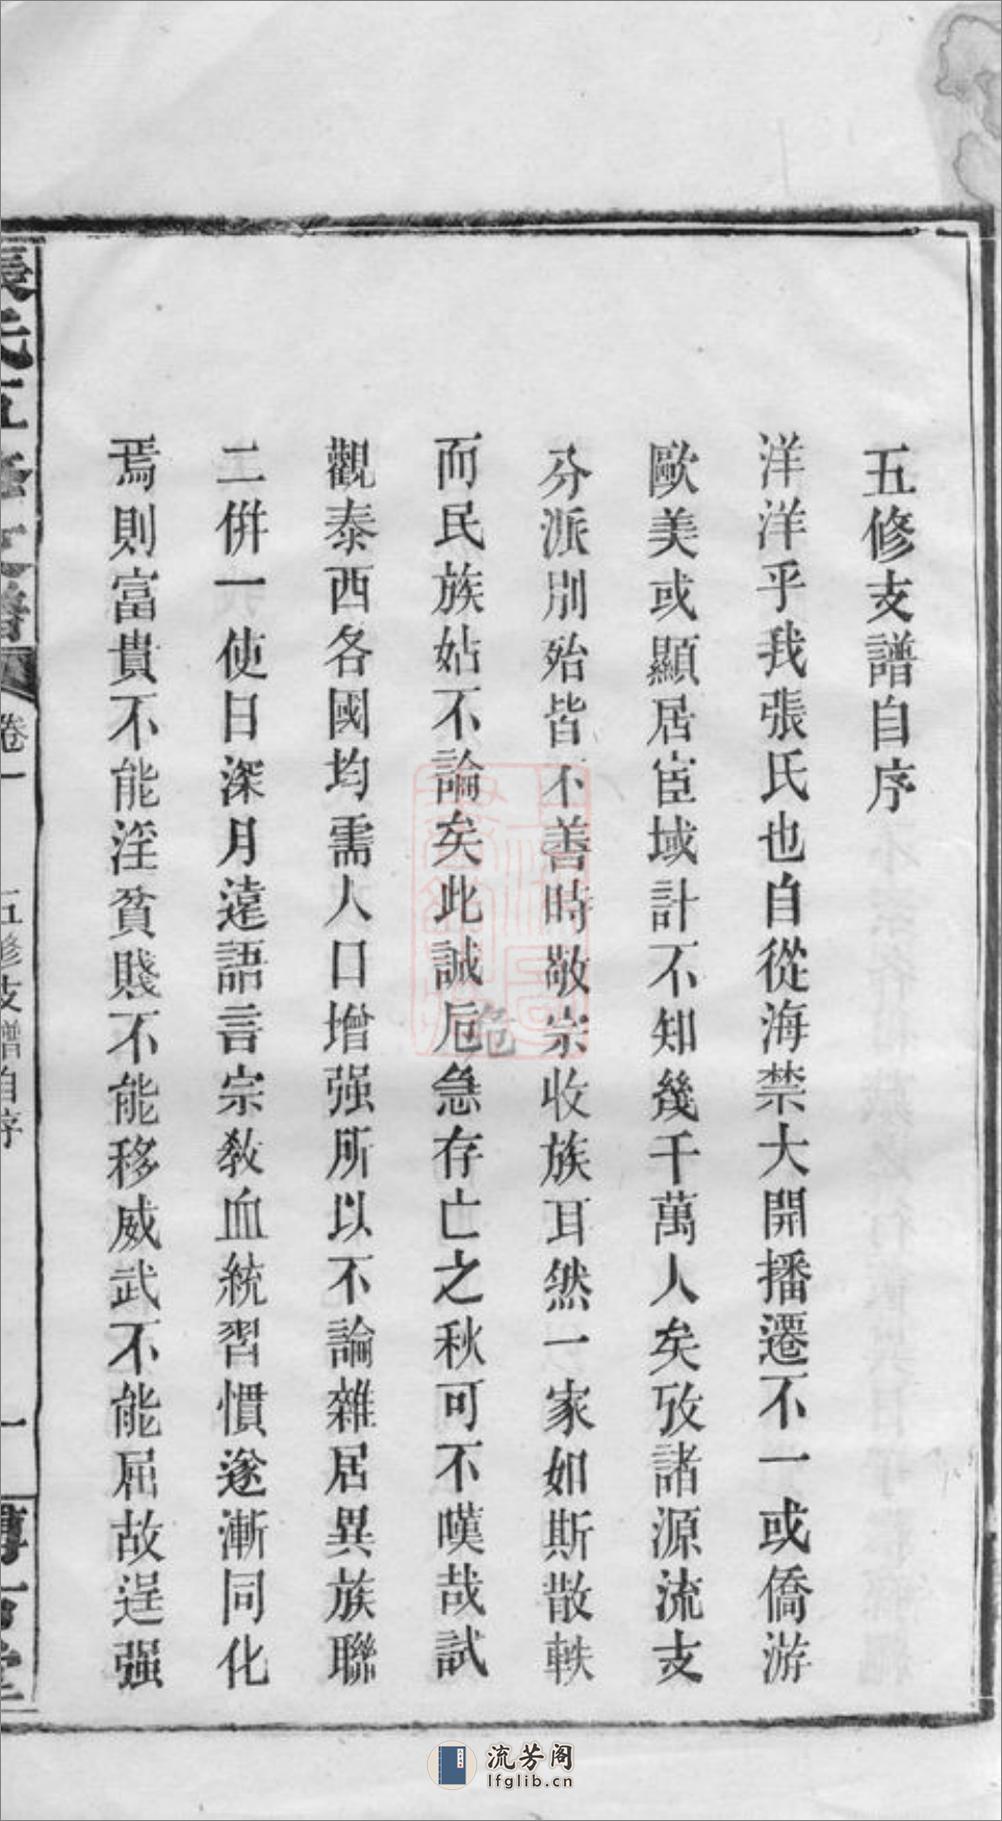 五修支譜自序
洋洋乎我張氏也自從海禁大開播遷不一或僑游
歐美或顯居宦域計不知幾千萬人矣攷諸源流支
分派別殆皆不善時敬宗收族耳然一家如斯散軼
而民族姑不論矣此誠卮急存亡之秋可不嘆哉試
危
觀泰西各國均需人口增强所以不論雜居異族聯
二併一使日深月遠語言宗教血統習慣遂漸同化
焉則富貴不能淫貧賤不能移威武不能屈故逞强
張氏五修支譜
卷一
五修支譜自序
一
流芳阁
lfglib.cn